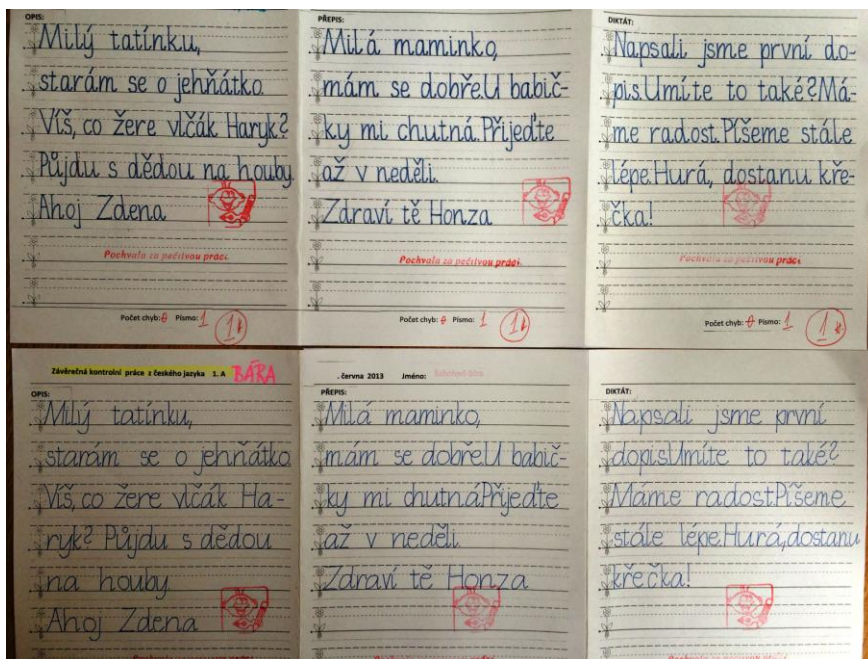 OPIS:
Milý tatínku,
starám se o jehňátko.
Víš, co žere vlčák Haryk?
Půjdu s dědou na houby.
Ahoj Zdena
Pochvala za pečlivou práci.
Počet chyb: 0 Písmo: 1 1*
PŘEPIS:
Milá maminko,
mám se dobře.U babič-
ky mi chutná.Přijeďte
až v neděli.
Zdraví tě Honza
Pochvala za pečlivou práci.
Počet chyb: 0 Písmo: 1 1*
DIKTÁT:
Napsali jsme první do-
pis.Umíte to také?Má-
me radost.Píšeme stále
lépe.Hurá, dostanu kře-
čka!
Pochvala za pečlivou práci.
Počet chyb: 0 Písmo: 1 1*
Závěrečná kontrolní práce z českého jazyka 1. A BÁRA
OPIS:
Milý tatínku,
starám se o jehňátko.
Víš, co žere vlčák Ha-
ryk? Půjdu s dědou
na houby.
Ahoj Zdena
. června 2013 Jméno:
PŘEPIS:
Milá maminko,
mám se dobře.U babič-
ky mi chutná.Přijeďte
až v neděli.
Zdraví tě Honza
DIKTÁT:
Napsali jsme první
dopis.Umíte to také?
Máme radost.Píšeme
stále lépe.Hurá,dostanu
křečka!